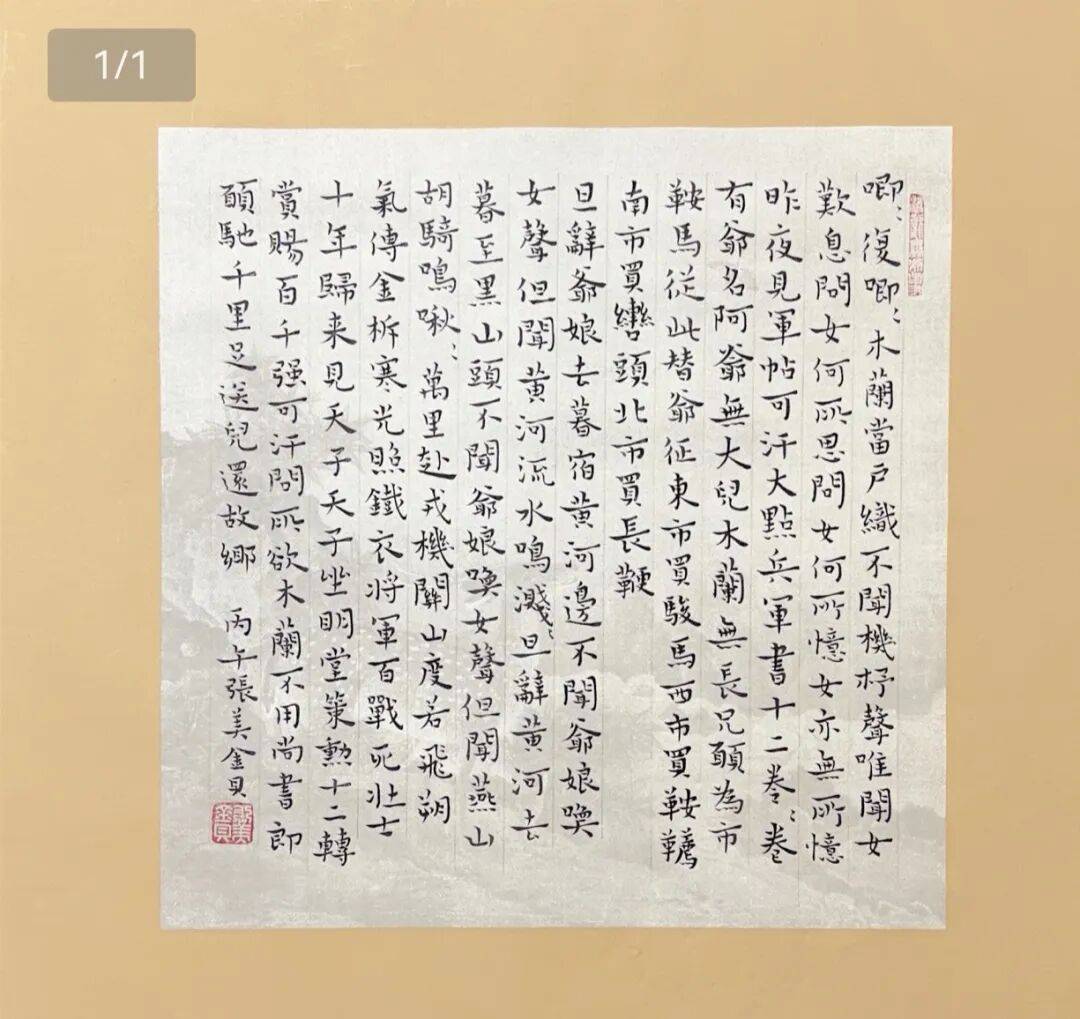 1/1
唧〻復唧〻木蘭當户織不聞機杼聲唯聞女
歎息問女何所思問女何所憶女亦無所憶
昨夜見軍帖可汗大點兵軍書十二卷〻卷
有爺名阿爺無大兒木蘭無長兄願為市
鞍馬從此替爺征東市買駿馬西市買鞍韉
南市買轡頭北市買長鞭
旦辭爺娘去暮宿黄河邊不聞爺娘喚
女聲但聞黄河流水鳴濺〻旦辭黄河去
暮至黑山頭不聞爺娘喚女聲但聞燕山
胡騎鳴啾〻萬里赴戎機關山度若飛朔
氣傳金柝寒光照鐵衣將軍百戰死壯士
十年歸来見天子天子坐明堂策勲十二轉
賞賜百千强可汗問所欲木蘭不用尚書郎
願馳千里足送兒還故鄉 丙午張美金貝